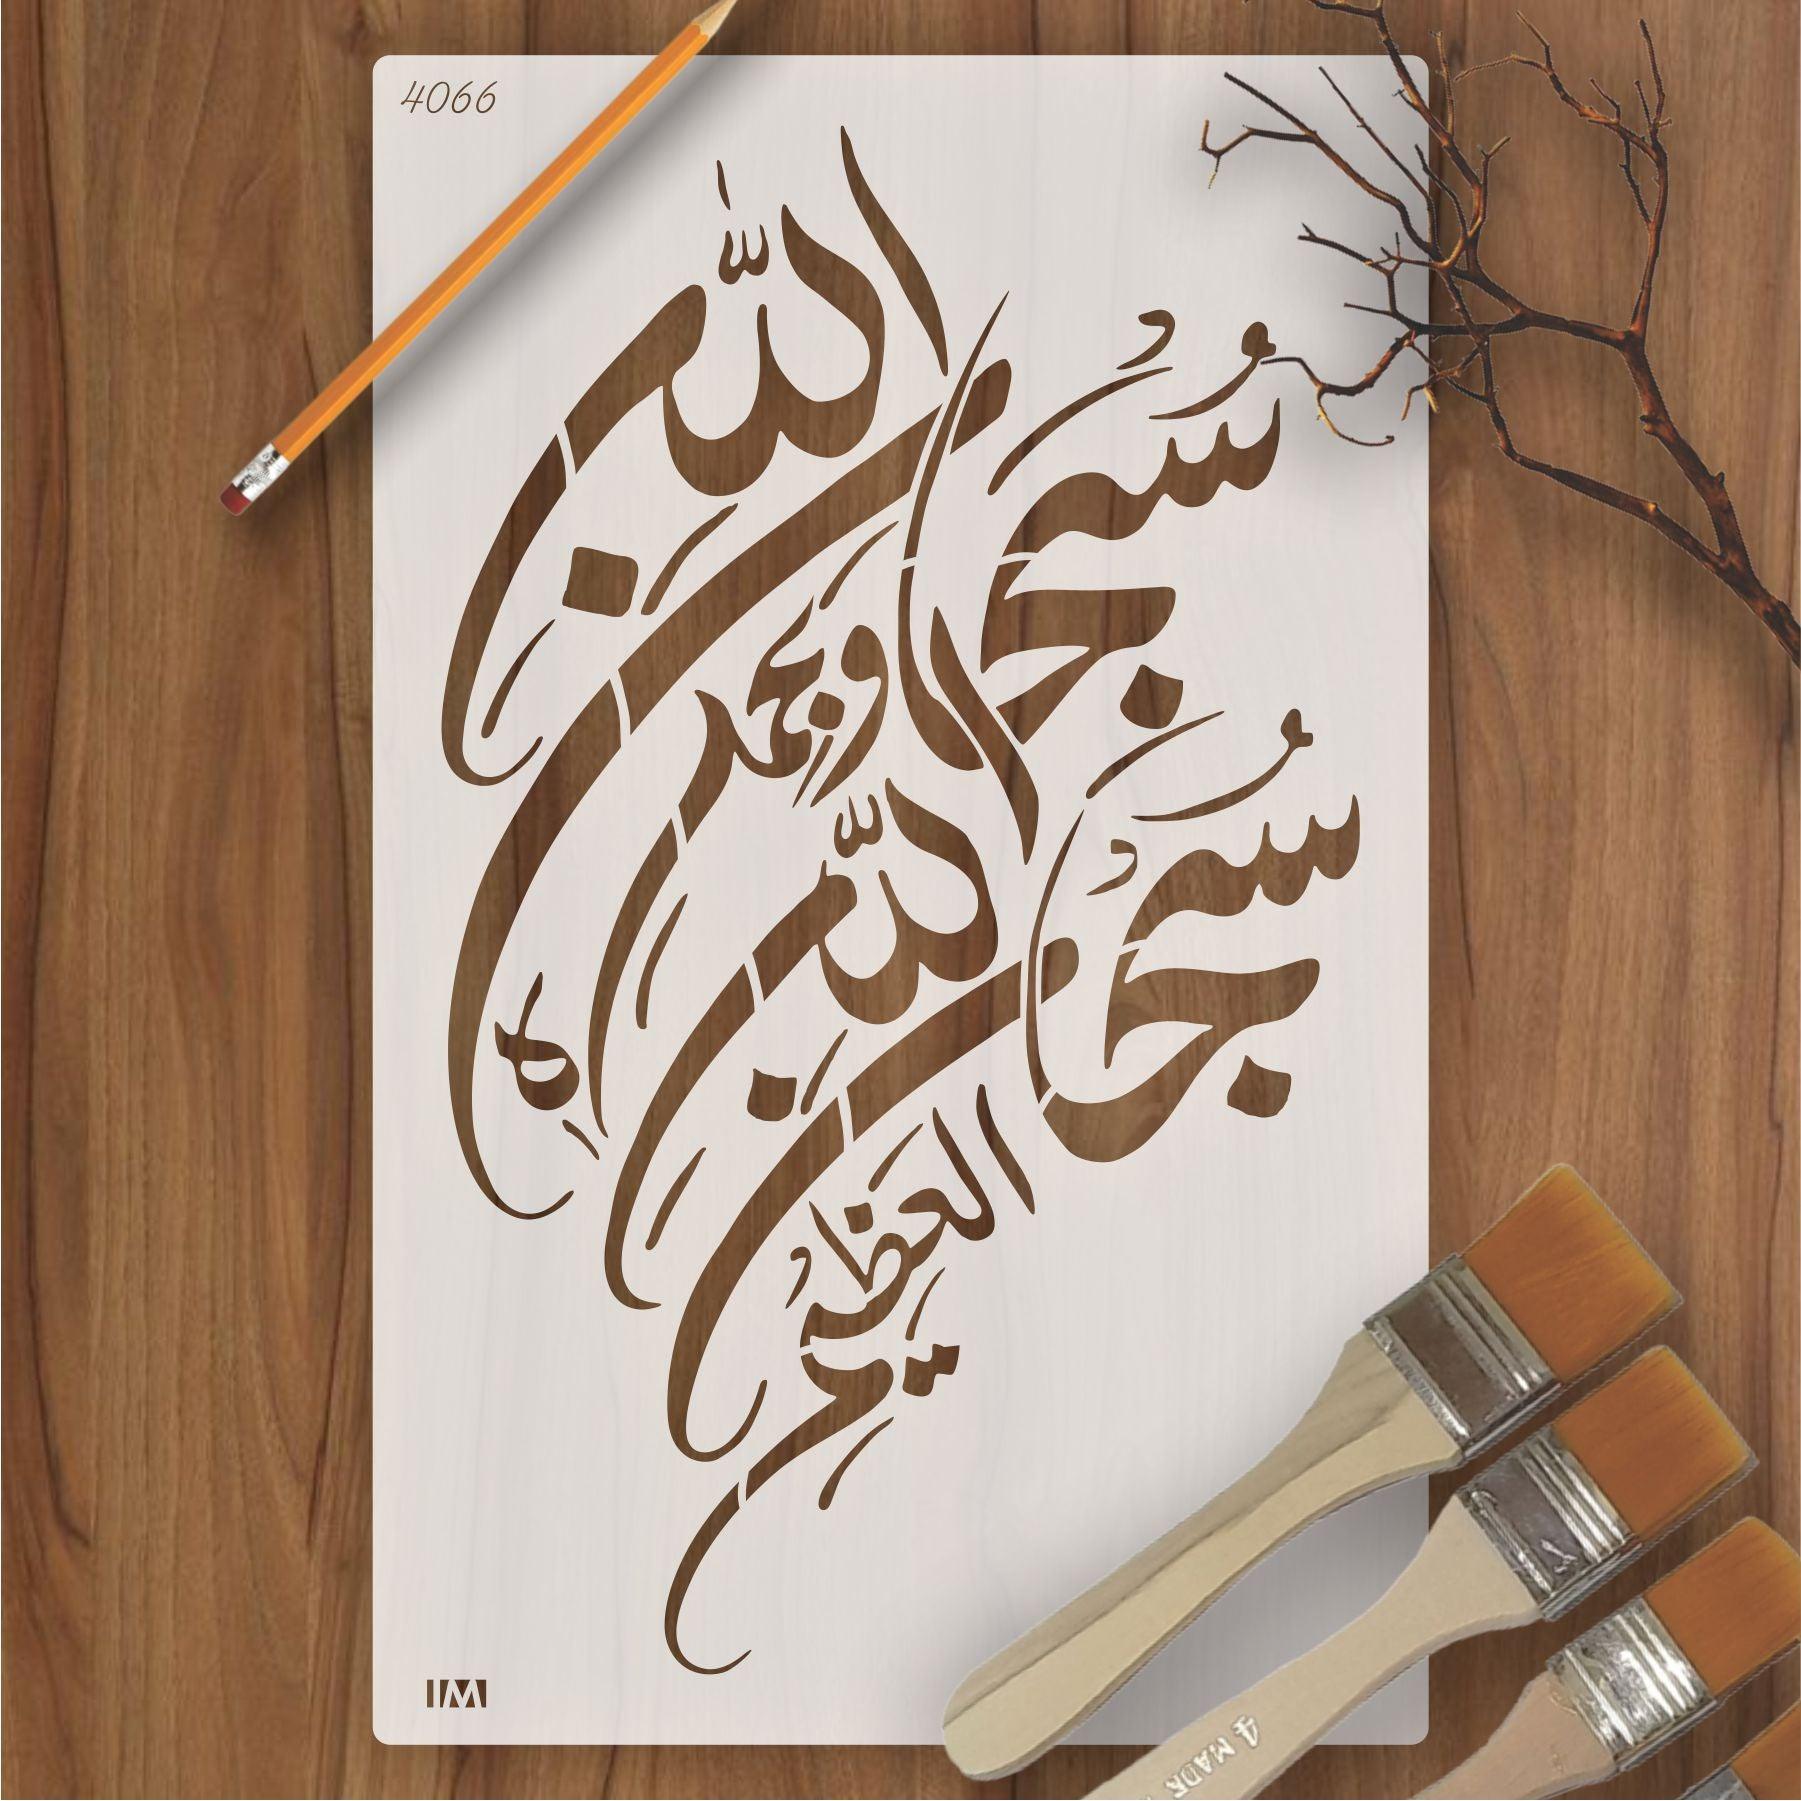 4066
سُبحان الله
وبحمده
سُبحان الله
العظيم
IM
4 MADE